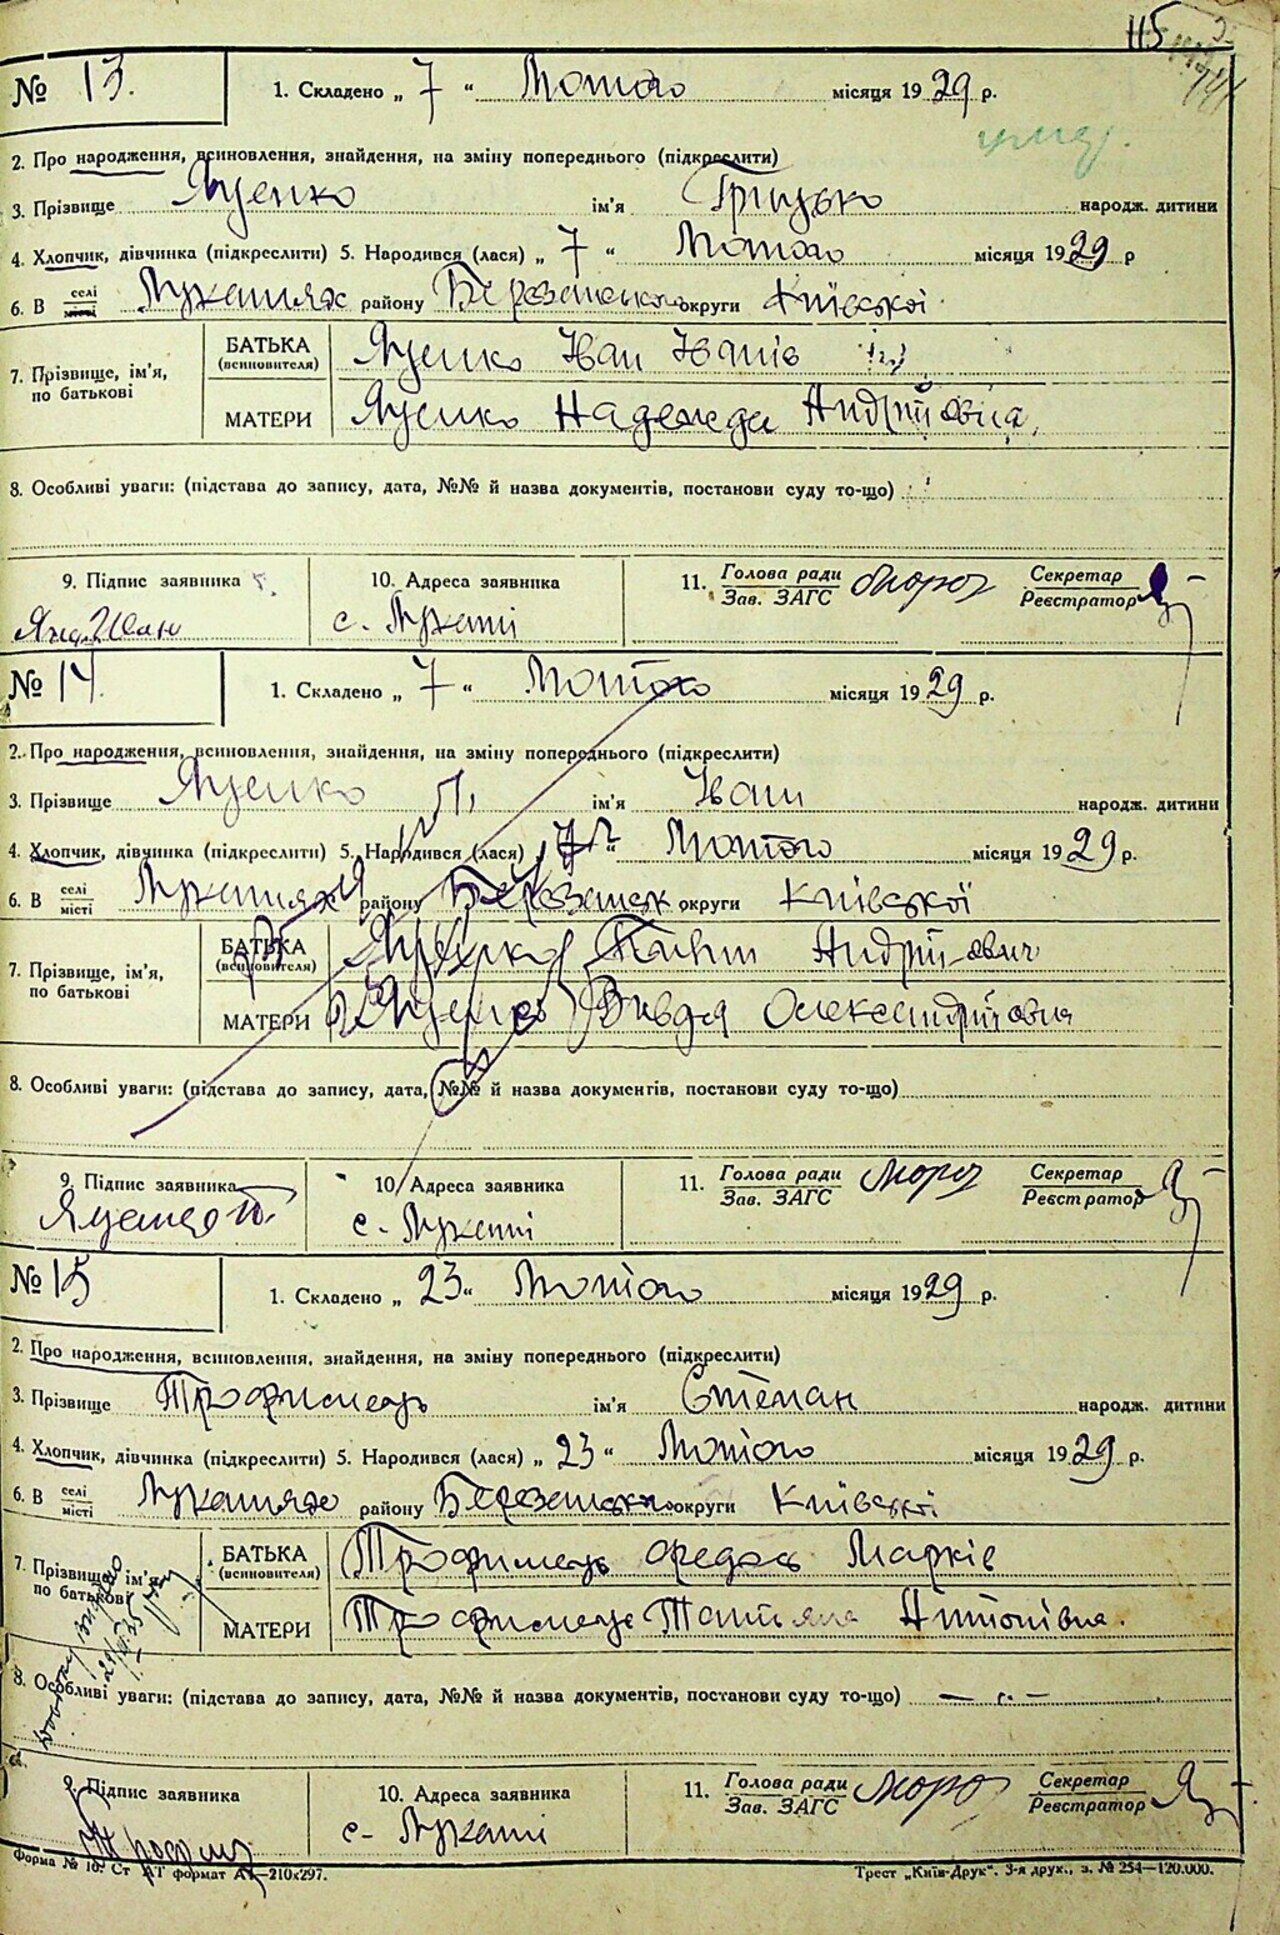 115
№ 13. 1. Складено „ 7 “ Лютого місяця 1929 р.
2. Про народження, всиновлення, знайдення, на зміну попереднього (підкреслити)
3. Прізвище Яценко ім'я Грицько народж. дитини
4. Хлопчик, дівчинка (підкреслити) 5. Народився (лася) „ 7 “ Лютого місяця 1929 р
6. В селі/місті Лукашах району Березанського округи Київської
7. Прізвище, ім'я, по батькові
БАТЬКА (всиновителя) Яценко Іван Іванів
МАТЕРИ Яценко Надежда Андрійовна
8. Особливі уваги: (підстава до запису, дата, №№ й назва документів, постанови суду то-що)
9. Підпис заявника 10. Адреса заявника 11. Голова ради/Зав. ЗАГС Мороз Секретар/Реєстратор
Яц. Иван с. Лукаші
№ 14. 1. Складено „ 7 “ Лютого місяця 1929 р.
2. Про народження, всиновлення, знайдення, на зміну попереднього (підкреслити)
3. Прізвище Яценко П. ім'я Іван народж. дитини
4. Хлопчик, дівчинка (підкреслити) 5. Народився (лася) „ 7 “ Лютого місяця 1929 р.
6. В селі/місті Лукашах району Березанськ округи Київської
7. Прізвище, ім'я, по батькові
БАТЬКА (всиновителя) Яценко Андрійович
МАТЕРИ Яценко Олександрійовна
8. Особливі уваги: (підстава до запису, дата, №№ й назва документів, постанови суду то-що)
9. Підпис заявника 10. Адреса заявника 11. Голова ради/Зав. ЗАГС Мороз Секретар/Реєстратор
Яценко с. Лукаші
№ 15 1. Складено „ 23 “ Лютого місяця 1929 р.
2. Про народження, всиновлення, знайдення, на зміну попереднього (підкреслити)
3. Прізвище Трофимець ім'я Степан народж. дитини
4. Хлопчик, дівчинка (підкреслити) 5. Народився (лася) „ 23 “ Лютого місяця 1929 р.
6. В селі/місті Лукашах району Березанського округи Київської
7. Прізвище, ім'я, по батькові
БАТЬКА (всиновителя) Трофимець Федось Марків
МАТЕРИ Трофимець Татьяна Антонівна.
8. Особливі уваги: (підстава до запису, дата, №№ й назва документів, постанови суду то-що)
9. Підпис заявника 10. Адреса заявника 11. Голова ради/Зав. ЗАГС Мороз Секретар/Реєстратор
с. Лукаші
Форма № 10. Ст АТ формат А4—210х297. Трест „Київ-Друк“. 3-я друк., з. № 254—120.000.